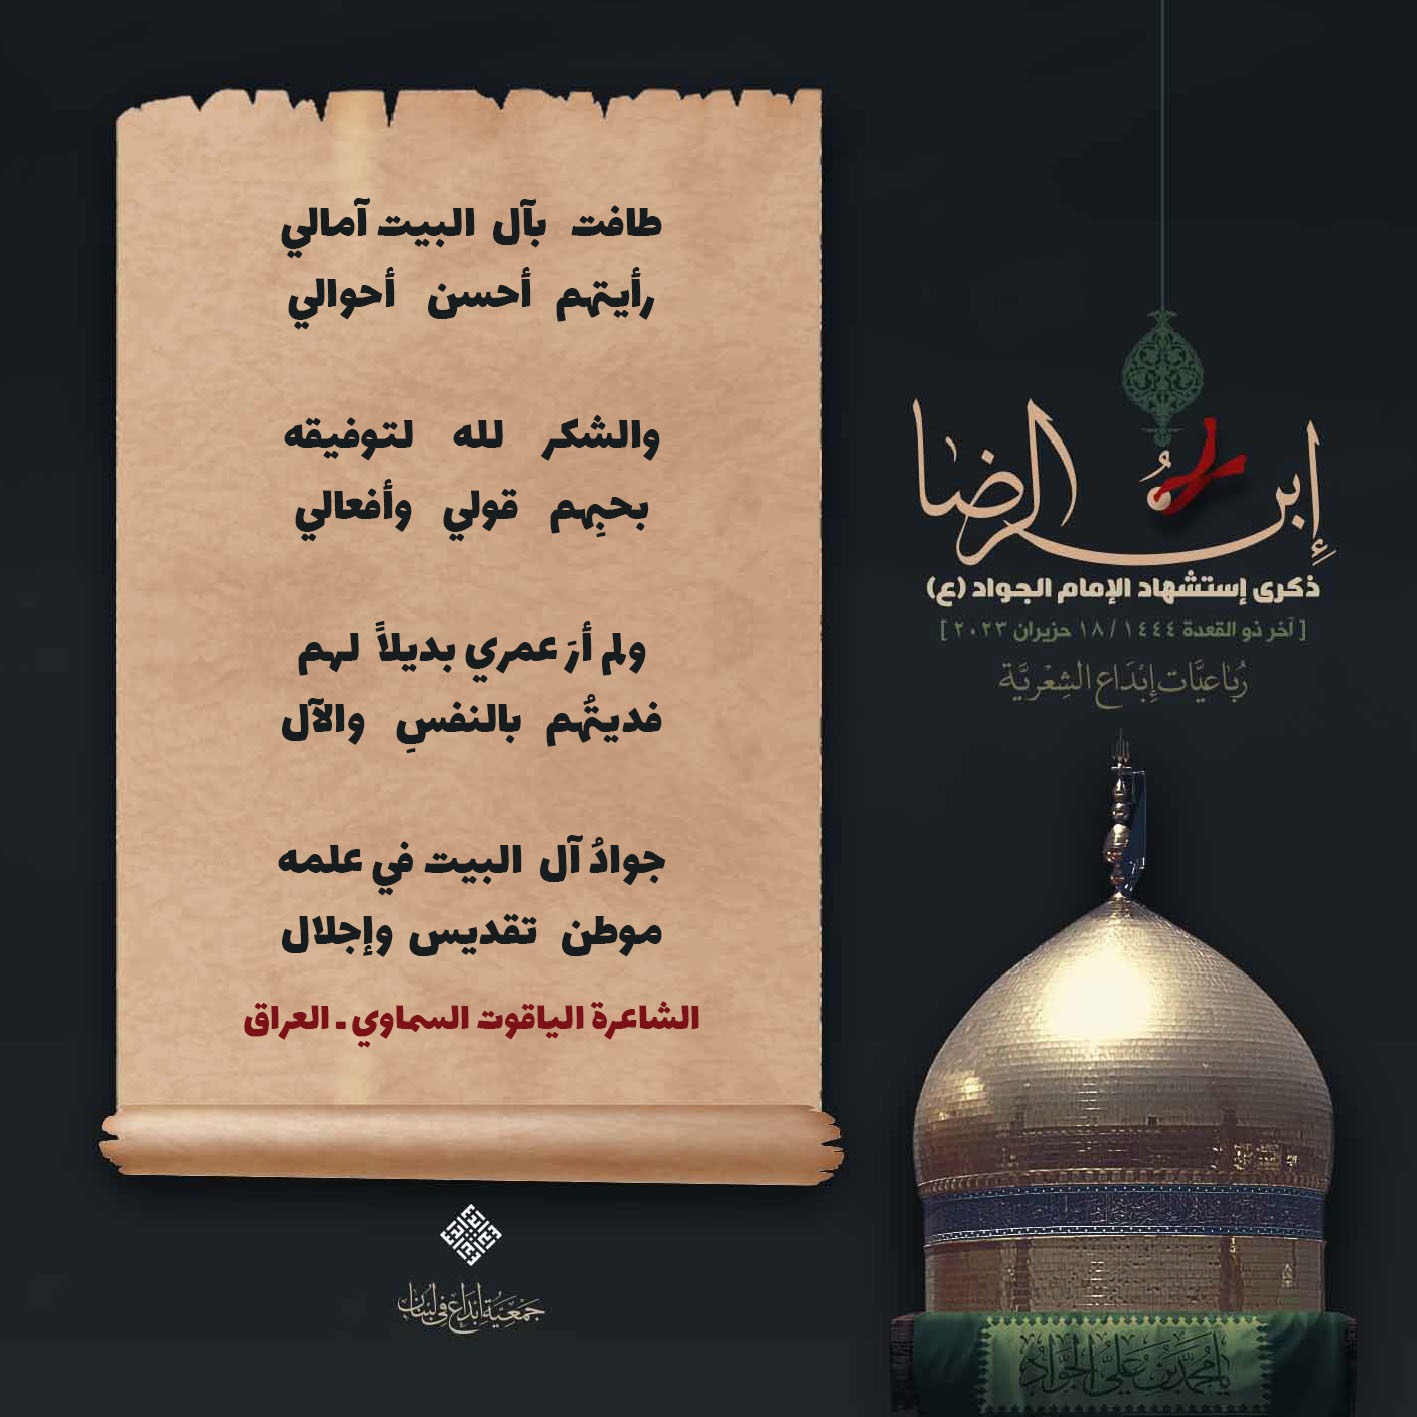 طافت بآل البيت آمالي
رأيتهم أحسن أحوالي
والشكر لله لتوفيقه
بحبِهم قولي وأفعالي
ولم أرَ عمري بديلاً لهم
فديتُهم بالنفسِ والآل
جوادُ آل البيت في علمه
موطن تقديس وإجلال
الشاعرة الياقوت السماوي - العراق
إبن الرضا
ذكرى إستشهاد الإمام الجواد (ع)
[ آخر ذو القعدة ١٤٤٤ / ١٨ حزيران ٢٠٢٣ ]
رُبَاعيَّات إبْدَاع الشِعْريَّة
يا محمد بن علي الجواد
جمعية إبداع في لبنان